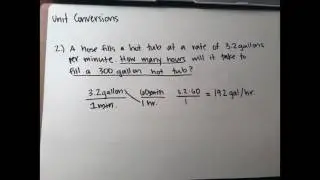 Unit Conversions
2.) A hose fills a hot tub at a rate of 3.2 gallons
per minute. How many hours will it take to
fill a 300 gallon hot tub?
3.2 gallons / 1 min. 60 min / 1 hr. 3.2 · 60 / 1 = 192 gal/hr.